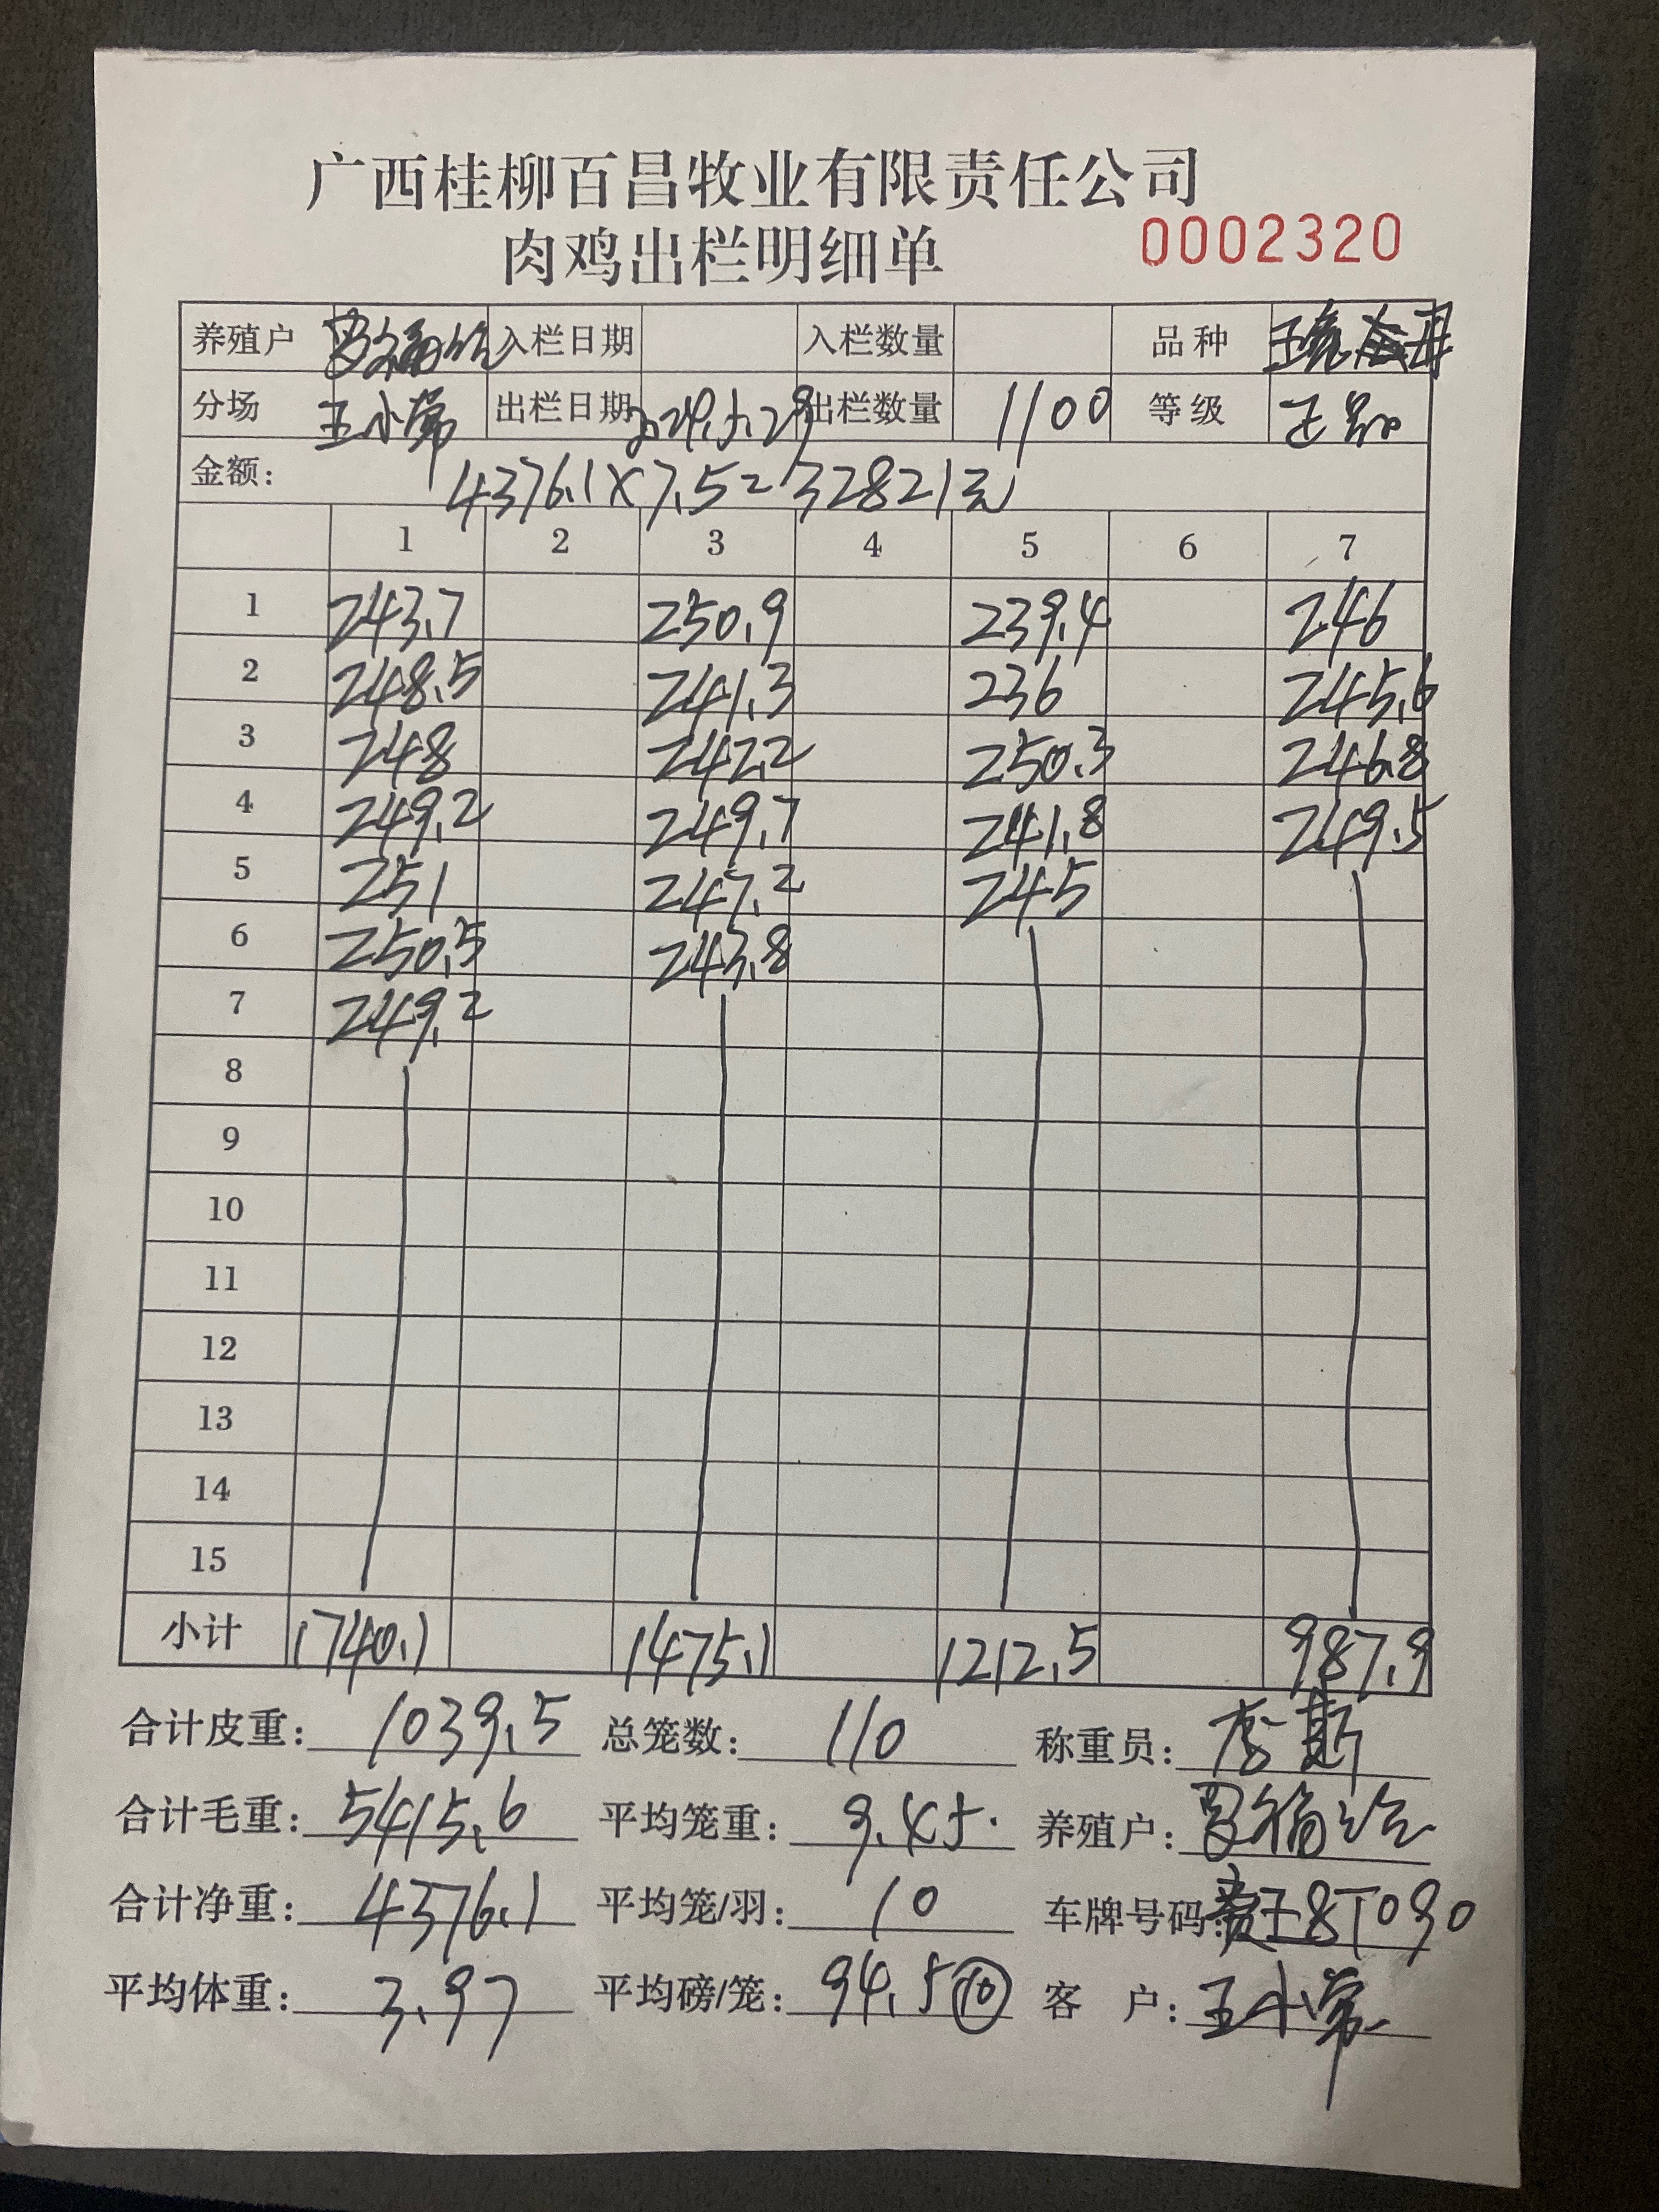 广西桂柳百昌牧业有限责任公司
肉鸡出栏明细单 0002320
养殖户 入栏日期 入栏数量 品种
分场 王小常 出栏日期 出栏数量 1100 等级
金额: 4376.1×7.5=32821元
1 2 3 4 5 6 7
1 243.7 250.9 239.4 246
2 248.5 241.3 236 245.6
3 248 242.2 250.3 246.8
4 249.2 249.7 241.8 249.5
5 251 247.2 245
6 250.5 243.8
7 249.2
8
9
10
11
12
13
14
15
小计 1740.1 1475.1 1212.5 987.9
合计皮重: 1039.5 总笼数: 110 称重员:
合计毛重: 5415.6 平均笼重: 9.45. 养殖户:
合计净重: 4376.1 平均笼/羽: 10 车牌号码: 8T090
平均体重: 3.97 平均磅/笼: 94.5 ⑩ 客 户: 王小常